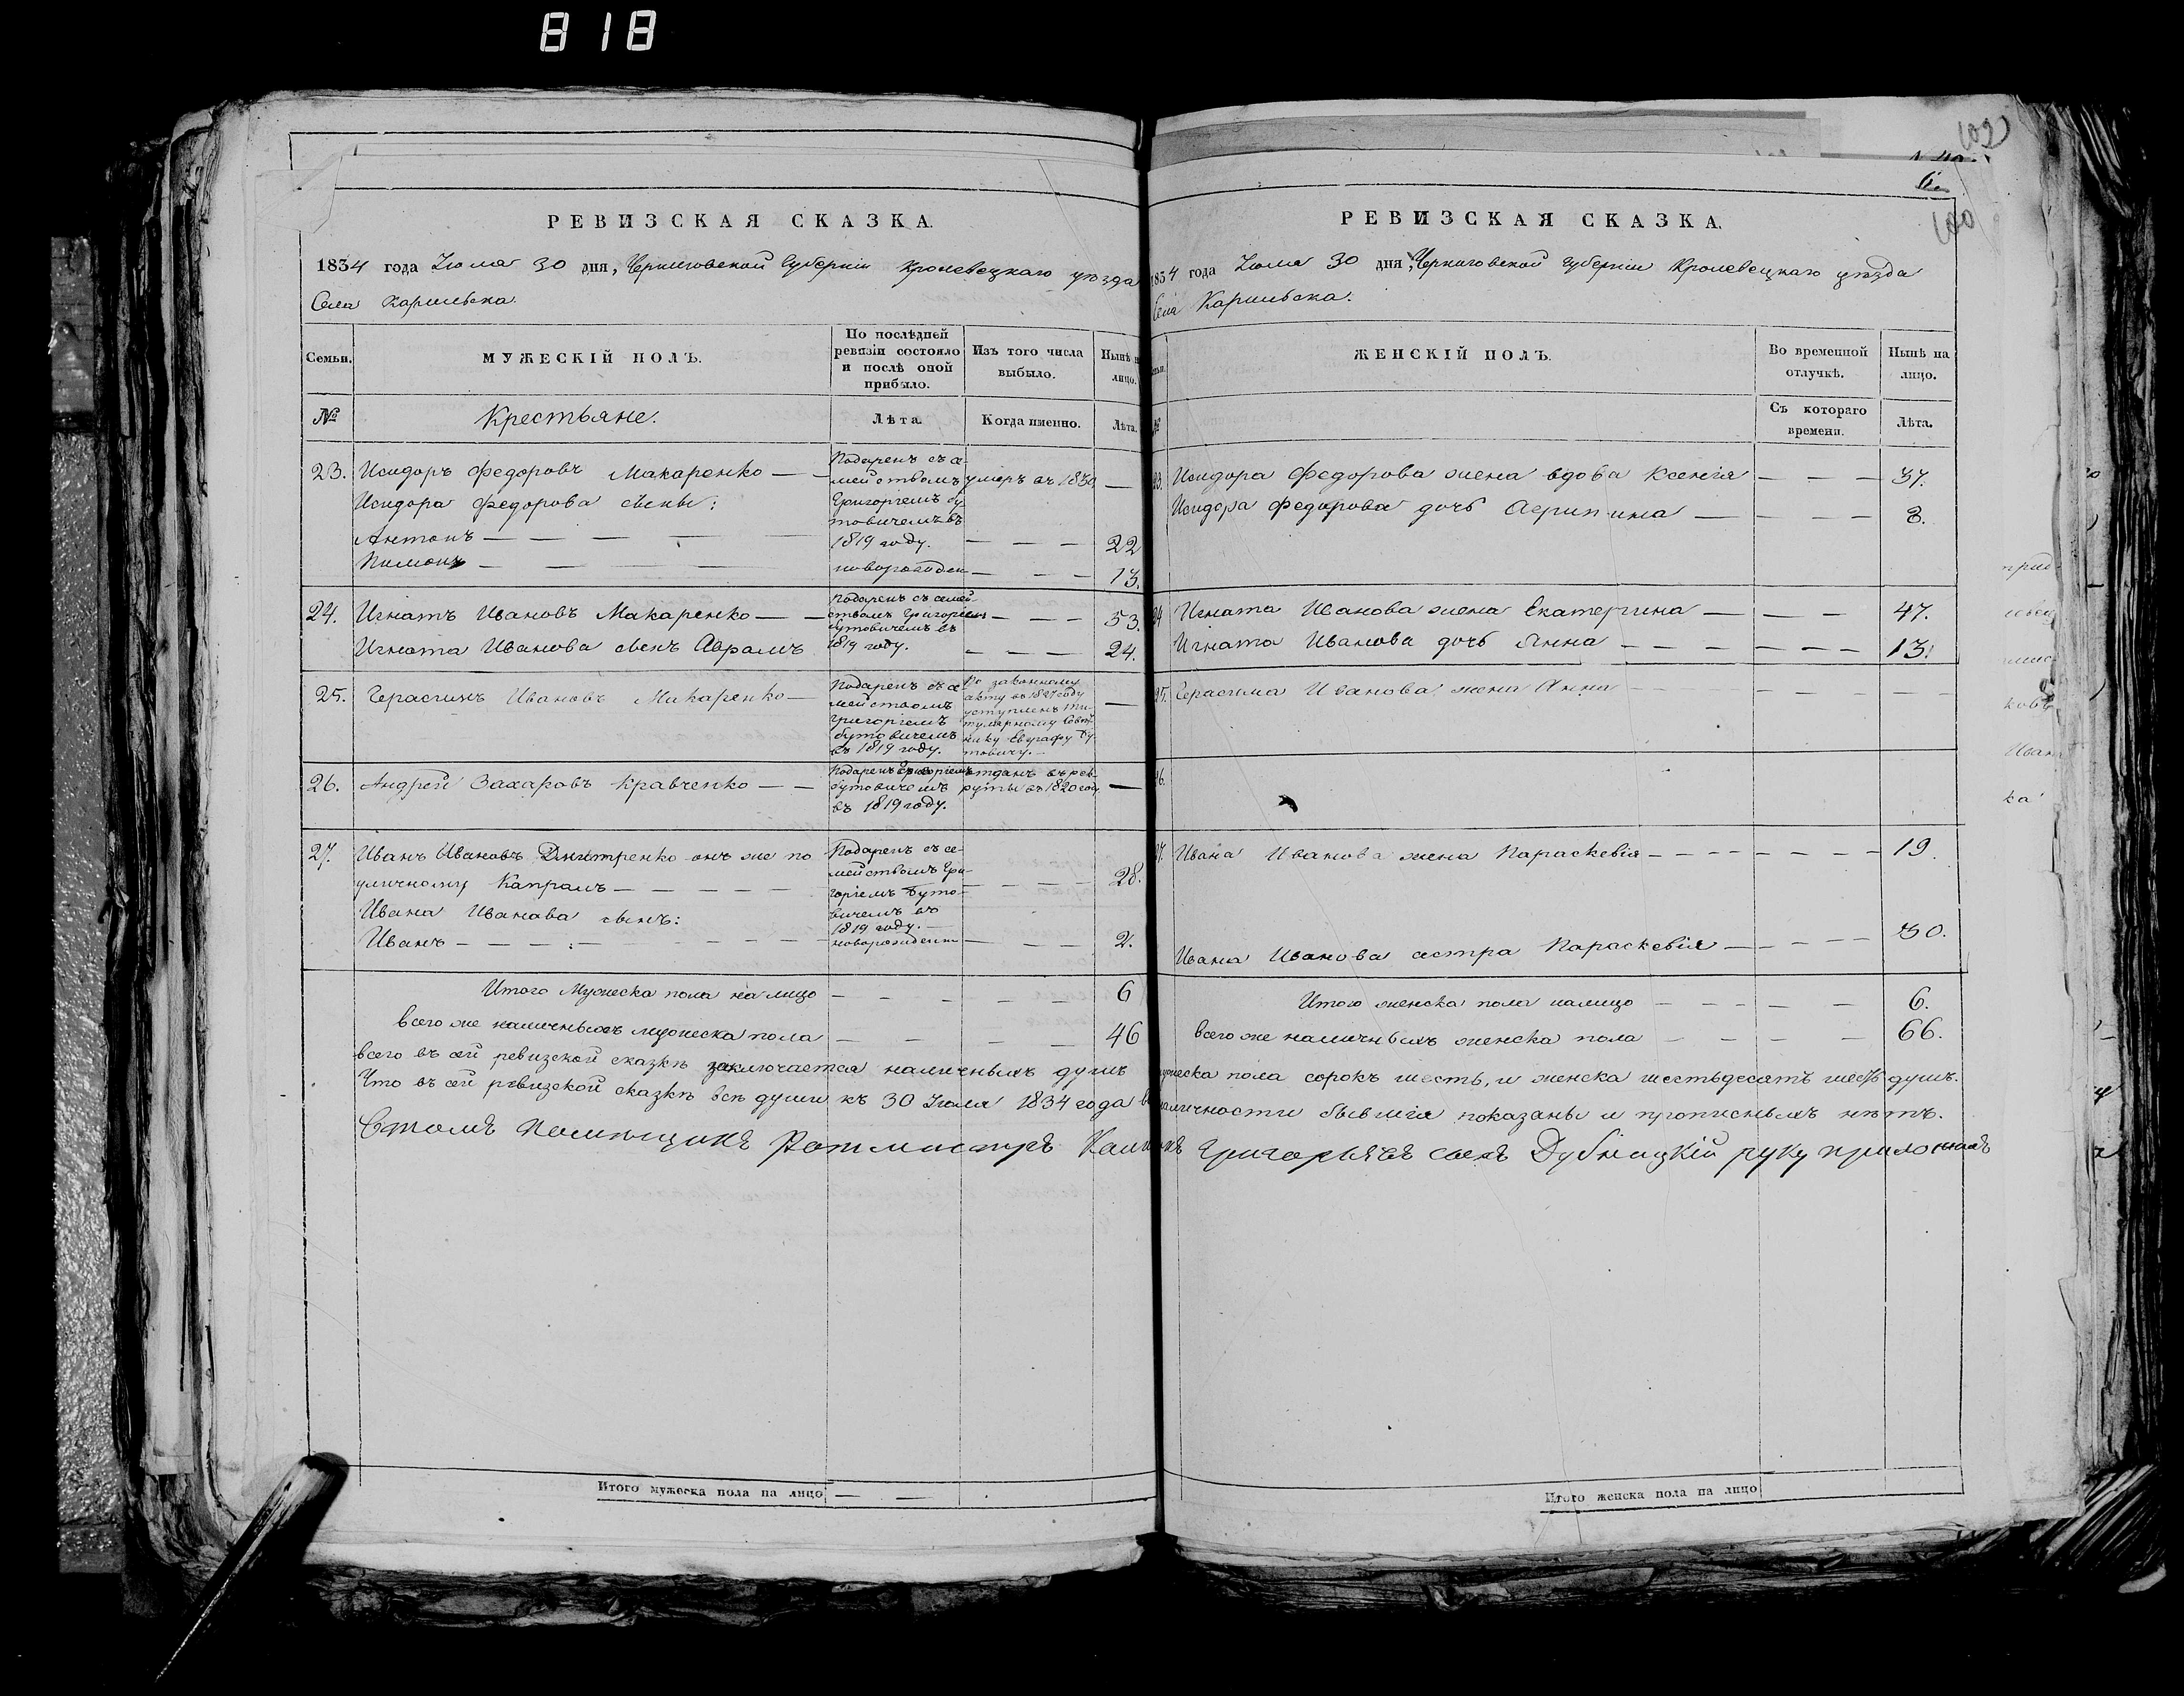 818
102
6.
100
РЕВИЗСКАЯ СКАЗКА.
1834 года Іюля 30 дня, Черниговской Губерніи Кролевецкаго уѣзда
Села Карильска.
Семьи.
МУЖЕСКІЙ ПОЛЪ.
По послѣдней ревизіи состояло и послѣ оной прибыло.
Изъ того числа выбыло.
Нынѣ н лицо.
№
Крестьяне.
Лѣта.
Когда именно.
Лѣта.
23. Исидоръ Федоровъ Макаренко — —
Подаренъ съ се-
мействомъ умеръ въ 1830 —
Исидора Федорова сыны:
Григоріемъ Бу-
товичемъ въ
Антонъ — — — — — 1819 году. — — — 22
Пимонъ — — — новорожден — — — 13.
24. Игнатъ Ивановъ Макаренко — —
Подаренъ съ семей-
ствомъ Григоріемъ — — — 53.
Бутовичемъ въ
Игната Иванова сынъ Аврамъ 1819 году. — — — — 24.
25. Герасимъ Ивановъ Макаренко —
Подаренъ съ се-
мействомъ
Григоріемъ
Бутовичемъ
въ 1819 году.
По законному
акту въ 1827 году
уступленъ Ти-
тулярному Совѣт-
нику Евграфу Бу-
товичу. —
26. Андрей Захаровъ Кравченко — —
Подаренъ Григоріемъ
Бутовичемъ
въ 1819 году.
отданъ въ рек-
руты въ 1820 году —
27. Иванъ Ивановъ Дмитренко онъ же по
уличному Капралъ — — — — —
Подаренъ съ се-
мействомъ Гри-
горіемъ Буто-
вичемъ въ
1819 году. —
28.
Ивана Иванова сынъ:
Иванъ — — — — — — — новорожденн — — — 2.
Итого Мужеска пола на лицо — — — — — 6
всего же наличныхъ мужеска пола — — — — 46
РЕВИЗСКАЯ СКАЗКА.
1834 года Іюля 30 дня, Черниговской Губерніи Кролевецкаго уѣзда
Села Карильска.
ЖЕНСКІЙ ПОЛЪ.
Во временной отлучкѣ.
Нынѣ на лицо.
Съ котораго времени.
Лѣта.
23. Исидора Федорова жена вдова Ксенія — — — 37.
Исидора Федорова дочь Агрипина — — — — 8.
24. Игната Иванова жена Екатерина — — — 47.
Игната Иванова дочь Анна — — — — — — — 13.
25. Герасима Иванова жена Анна — — — — — —
26.
27. Ивана Иванова жена Параскевія — — — — — — — — 19.
Ивана Иванова сестра Параскевія — — — — — 30.
Итого женска пола налицо — — — — 6.
всего же наличныхъ женска пола — — — — 66.
всего въ сей ревизской сказкѣ заключается наличныхъ душъ мужеска пола сорокъ шесть, и женска шестьдесятъ шесть душъ.
Что въ сей ревизской сказкѣ всѣ души къ 30 Іюля 1834 года въ наличности бывшія показаны и прописныхъ нѣтъ.
помѣщикъ Ротмистръ Григорьевъ сынъ руку приложилъ
Итого мужеска пола на лицо — —
Итого женска пола на лицо